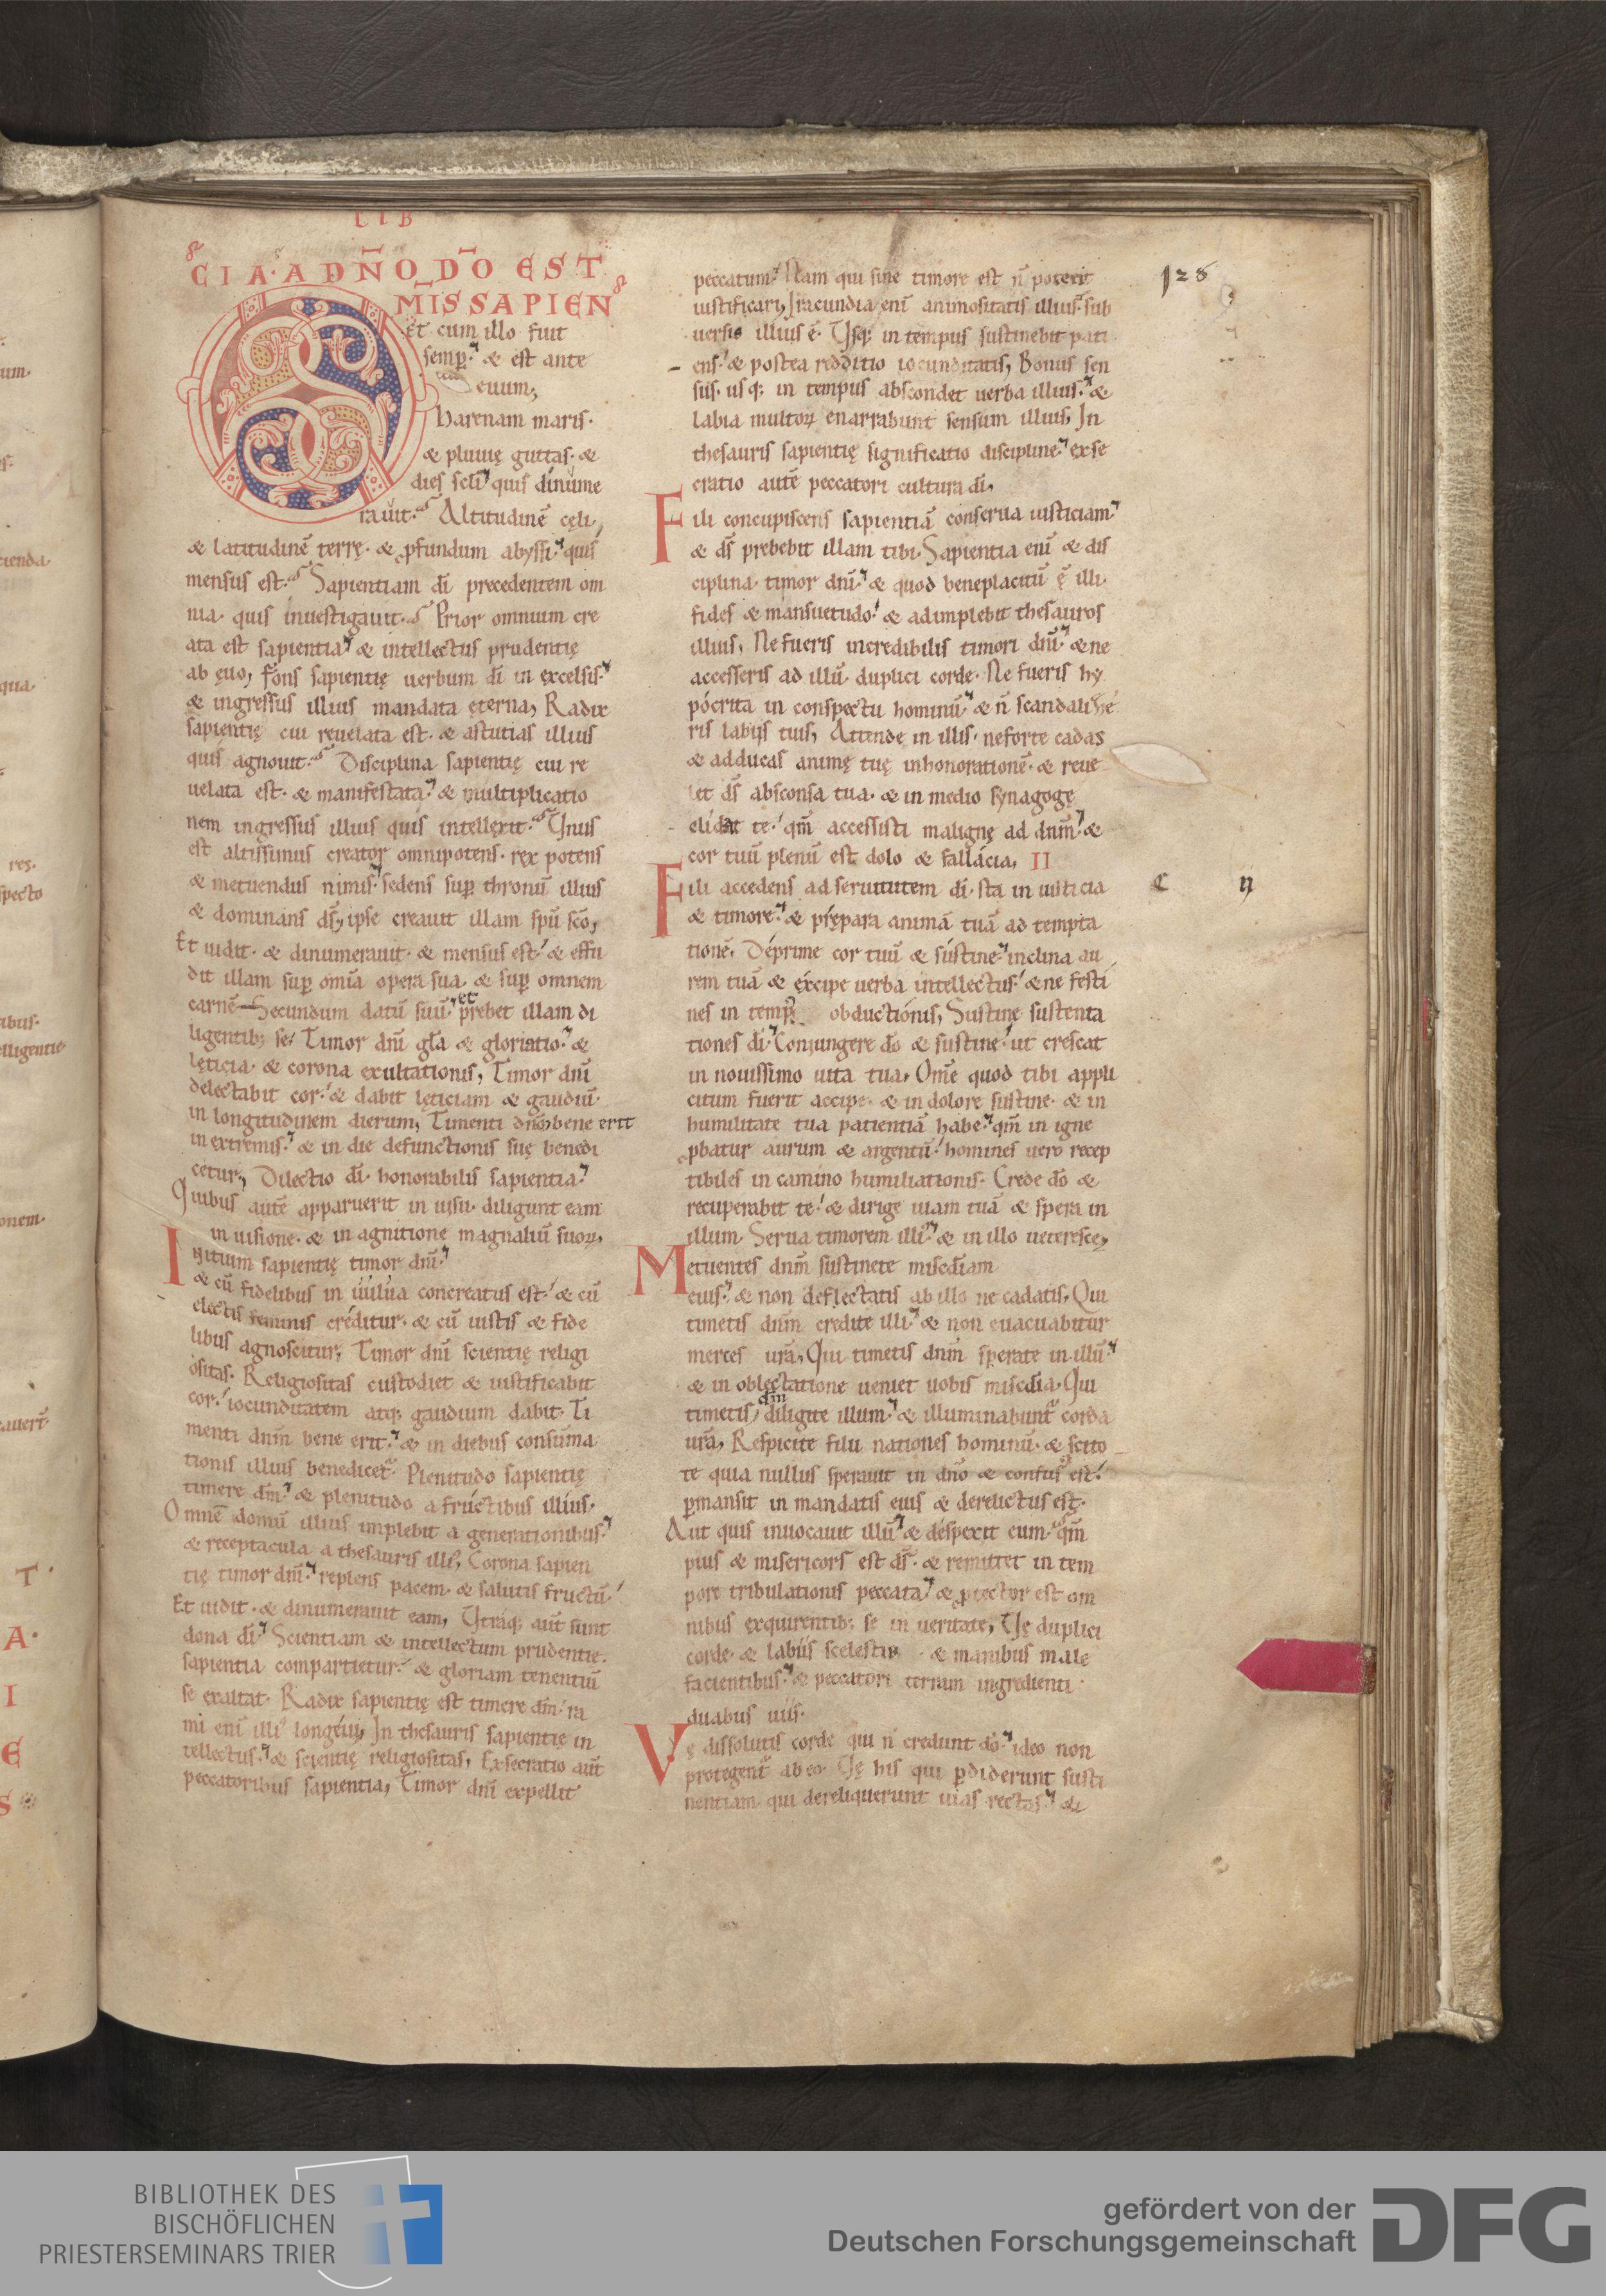 LIB
CIA·A DÑO DO EST
MIS SAPIEN
Et cum illo fuit
semp. & est ante
euum;
harenam maris.
& pluuię guttas. &
dies scli quis dinume
rauit. Altitudinē cęli,
& latitudinē terrę. & pfundum abyssi quis
mensus est. Sapientiam dī precedentem om
nia. quis inuestigauit. Prior omnium cre
ata est sapientia & intellectus prudentię
ab ęuo, Fons sapientię uerbum dī in excelsis.
& ingressus illius mandata ęterna, Radix
sapientię cui reuelata est. & astutias illius
quis agnouit. Disciplina sapientię cui re
uelata est. & manifestata. & multiplicatio
nem ingressus illius quis intellexit. Unus
est altissimus creator omnipotens. rex potens
& metuendus nimis. sedens sup thronū illius
& dominans ds, ipse creauit illam spū scō,
Et uidit. & dinumerauit. & mensus est. & effu
dit illam sup omīa opera sua. & sup omnem
carnē Secundum datū suū. et prebet illam di
ligentib; se. Timor dnī gła & gloriatio. &
lęticia. & corona exultationis, Timor dnī
delectabit cor. & dabit lęticiam & gaudiū.
in longitudinem dierum, Timenti dnō bene erit
in extremis. & in die defunctionis suę benedi
cetur, Dilectio dī. honorabilis sapientia.
Quibus autē apparuerit in uisu. diligunt eam
in uisione. & in agnitione magnaliū suoꝝ,
Initium sapientię timor dnī.
& cū fidelibus in uulua concreatus est. & cū
electis feminis creditur. & cū iustis & fide
libus agnoscitur, Timor dnī scientię religi
ositas. Religiositas custodiet & iustificabit
cor. iocunditatem atq; gaudium dabit. Ti
menti dnm bene erit. & in diebus consuma
tionis illius benedicet. Plenitudo sapientię
timere dm. & plenitudo a fructibus illius.
Omnē domū illius implebit a generationibus.
& receptacula a thesauris illi, Corona sapien
tię timor dnī. replens pacem. & salutis fructū.
Et uidit. & dinumerauit eam, Utraq; aut sunt
dona dī. Scientiam & intellectum prudentię.
sapientia compartietur. & gloriam tenentiū
se exaltat. Radix sapientię est timere dm. ra
mi enī illi longeui, In thesauris sapientię in
tellectus. & scientię religiositas, Exsecratio aut
peccatoribus sapientia, Timor dnī expellit
128
peccatum. Nam qui sine timore est n̄ poterit
iustificari, Iracundia enī animositatis illius. sub
uersio illius ē. Usq; in tempus sustinebit pati
ens. & postea redditio iocunditatis, Bonus sen
sus. usq; in tempus abscondet uerba illius. &
labia multoꝝ enarrabunt sensum illius, In
thesauris sapientię significatio disciplinę. exse
cratio autē peccatori cultura dī,
Fili concupiscens sapientiā conserua iusticiam.
& ds prebebit illam tibi. Sapientia enī & dis
ciplina. timor dnī. & quod beneplacitū ē illi.
fides & mansuetudo. & adimplebit thesauros
illius, Ne fueris incredibilis timori dnī. & ne
accesseris ad illū. duplici corde. Ne fueris hy
pocrita in conspectu hominū. & n̄ scandalize
ris labiis tuis, Attende in illis. ne forte cadas
& adducas animę tuę inhonorationē. & reue
let ds absconsa tua. & in medio synagogę
elidat te. qm̄ accessisti maligne ad dnm. &
cor tuū plenū est dolo & fallacia, II
Fili accedens ad seruitutem dī. sta in iusticia
& timore. & prępara animā tuā ad tempta
tionē, Deprime cor tuū & sustine. inclina au
rem tuā & excipe uerba intellectus. & ne festi
nes in temp obductionis, Sustine sustenta
tiones dī. Coniungere dō & sustine. ut crescat
in nouissimo uita tua, Omē quod tibi appli
citum fuerit accipe. & in dolore sustine. & in
humilitate tua patientiā habe. qm̄ in igne
pbatur aurum & argentū. homines uero recep
tibiles in camino humiliationis. Crede dō &
recuperabit te. & dirige uiam tuā & spera in
illum. Serua timorem illi. & in illo ueteresce,
Metuentes dnm sustinete misediam
eius. & non deflectatis ab illo ne cadatis, Qui
timetis dnm credite illi. & non euacuabitur
merces ura, Qui timetis dnm sperate in illū.
& in oblectatione ueniet uobis miscdia. Qui
timetis dm diligite illum. & illuminabunt corda
ura, Respicite filii nationes hominū. & scito
te quia nullus sperauit in dno & confus est.
pmansit in mandatis eius & derelictus est.
Aut quis inuocauit illū. & despexit eum. qm̄
pius & misericors est ds. & remittet in tem
pore tribulationis peccata. & ptector est om
nibus exquirentib; se in ueritate, Uę duplici
corde. & labiis scelestis. & manibus male
facientibus. & peccatori terram ingredienti
duabus uiis.
Vę dissolutis corde qui n̄ credunt dō. ideo non
protegent ab eo. Uę his qui pdiderunt susti
nentiam. qui dereliquerunt uias rectas. & di
BIBLIOTHEK DES
BISCHÖFLICHEN
PRIESTERSEMINARS TRIER
gefördert von der
Deutschen Forschungsgemeinschaft
DFG